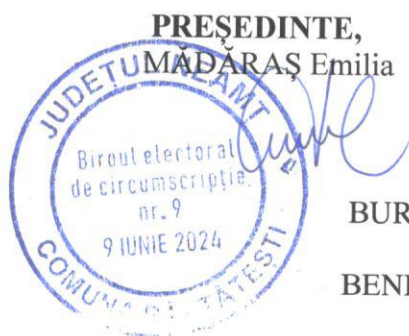 PREȘEDINTE,
MĂDĂRAȘ Emilia
JUDEȚUL NEAMȚ
Biroul electoral
de circumscripție
nr. 9
9 IUNIE 2024
COMUNA
BUR
BENI